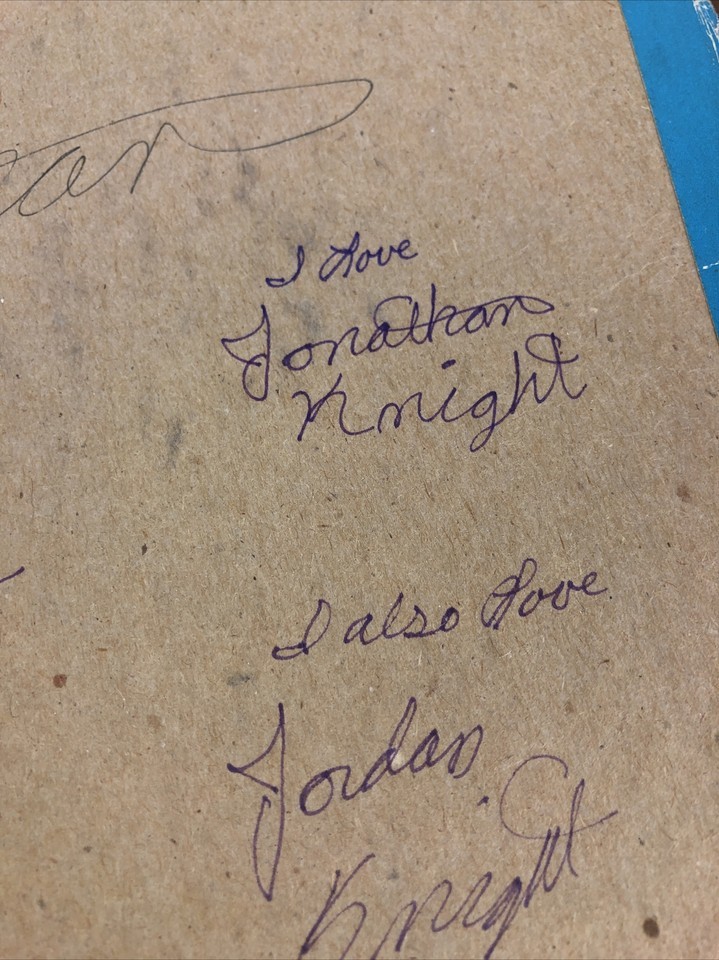 I love
Jonathan
Knight
I also love
Jordan
Knight